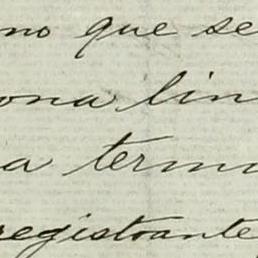 no que se
ona lin
a termi
registrante